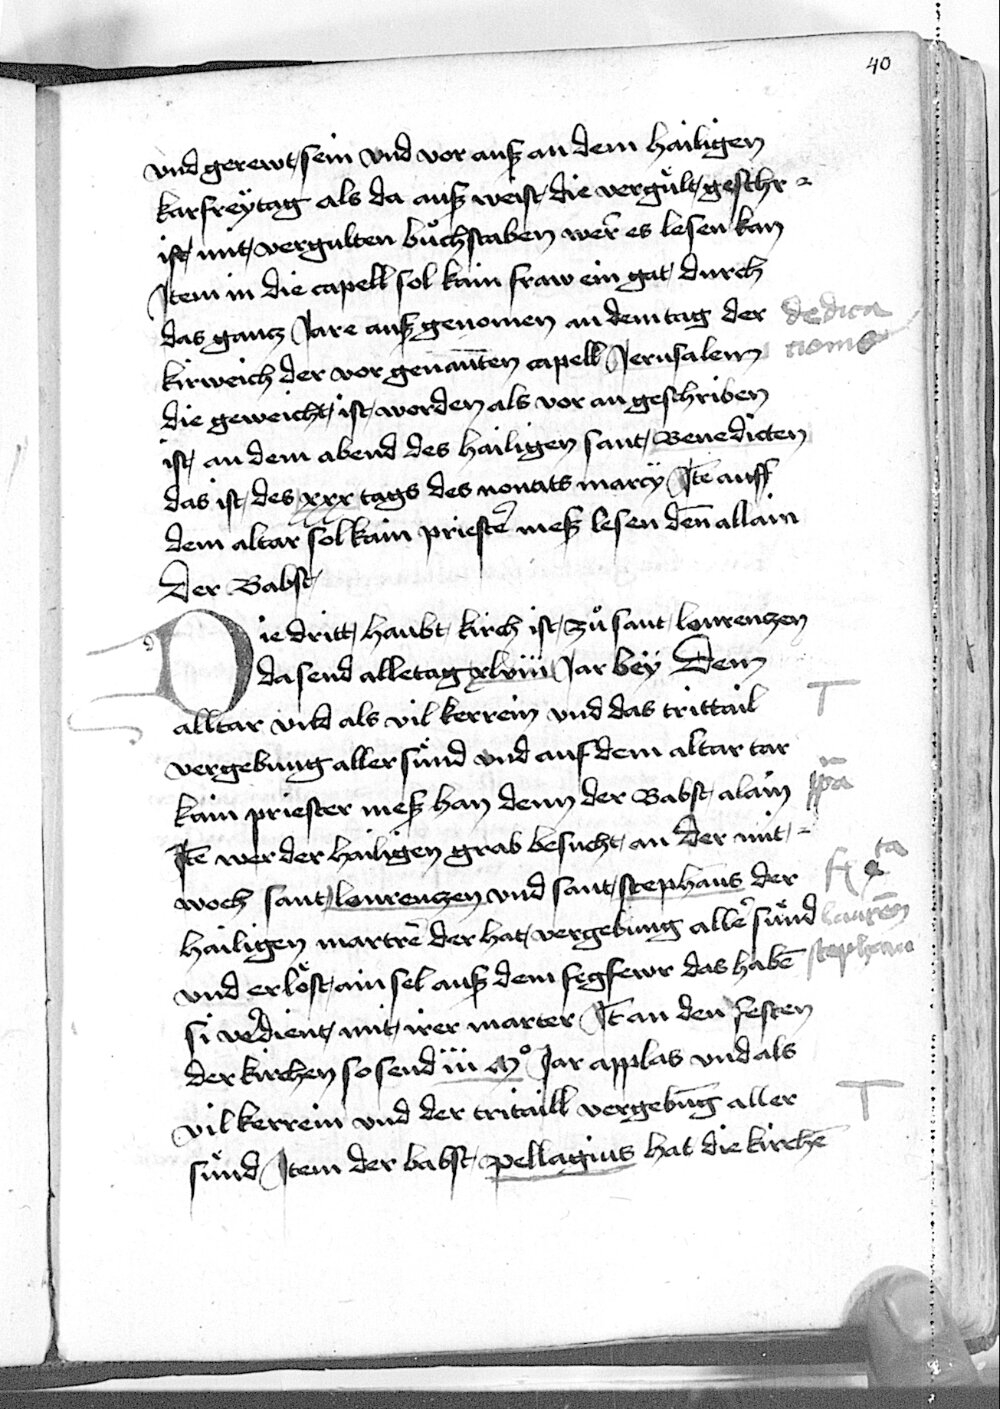 40
vnd gerewt sein vnd vor auß an dem hailigen
karfreÿtag als da auß weist die vergült geschr
ist mit vergulten bůchstaben wer es lesen kan
Item in die capell sol kain fraw ein gat durch
das gancz Jare auß genomen an dem tag der
dedica
tionis
kirweich der vor genanten capell Jerusalem
die geweicht ist worden als vor an geschriben
ist an dem abend des hailigen sant Benedicten
das ist des xxx tags des monats marcÿ Itē auff
dem altar sol kain priester meß lesen deñ allain
der Babst
Die dritt haubt kirch ist zů sant lourenczen
da send alletag xlviii Jar beÿ Dem
T
alltar vnd als vil kerrein vnd das trittail
vergebung aller sünd vnd auf dem altar tar
kain priester meß han denn der Babst alain
Itē wer der hailigen grab besucht an der mit
woch sant lourenczen vnd sant stephans der
hailigen martrē der hat vergebung aller sünd
stephan
vnd erlöst ain sel auß dem fegfewr das habē
si verdient mit irer marter It an den festen
der kirchen so send iii Mº Jar applas vnd als
T
vil kerrein vnd der tritaill vergebūg aller
sünd Item der babst pellagius hat die kirchē